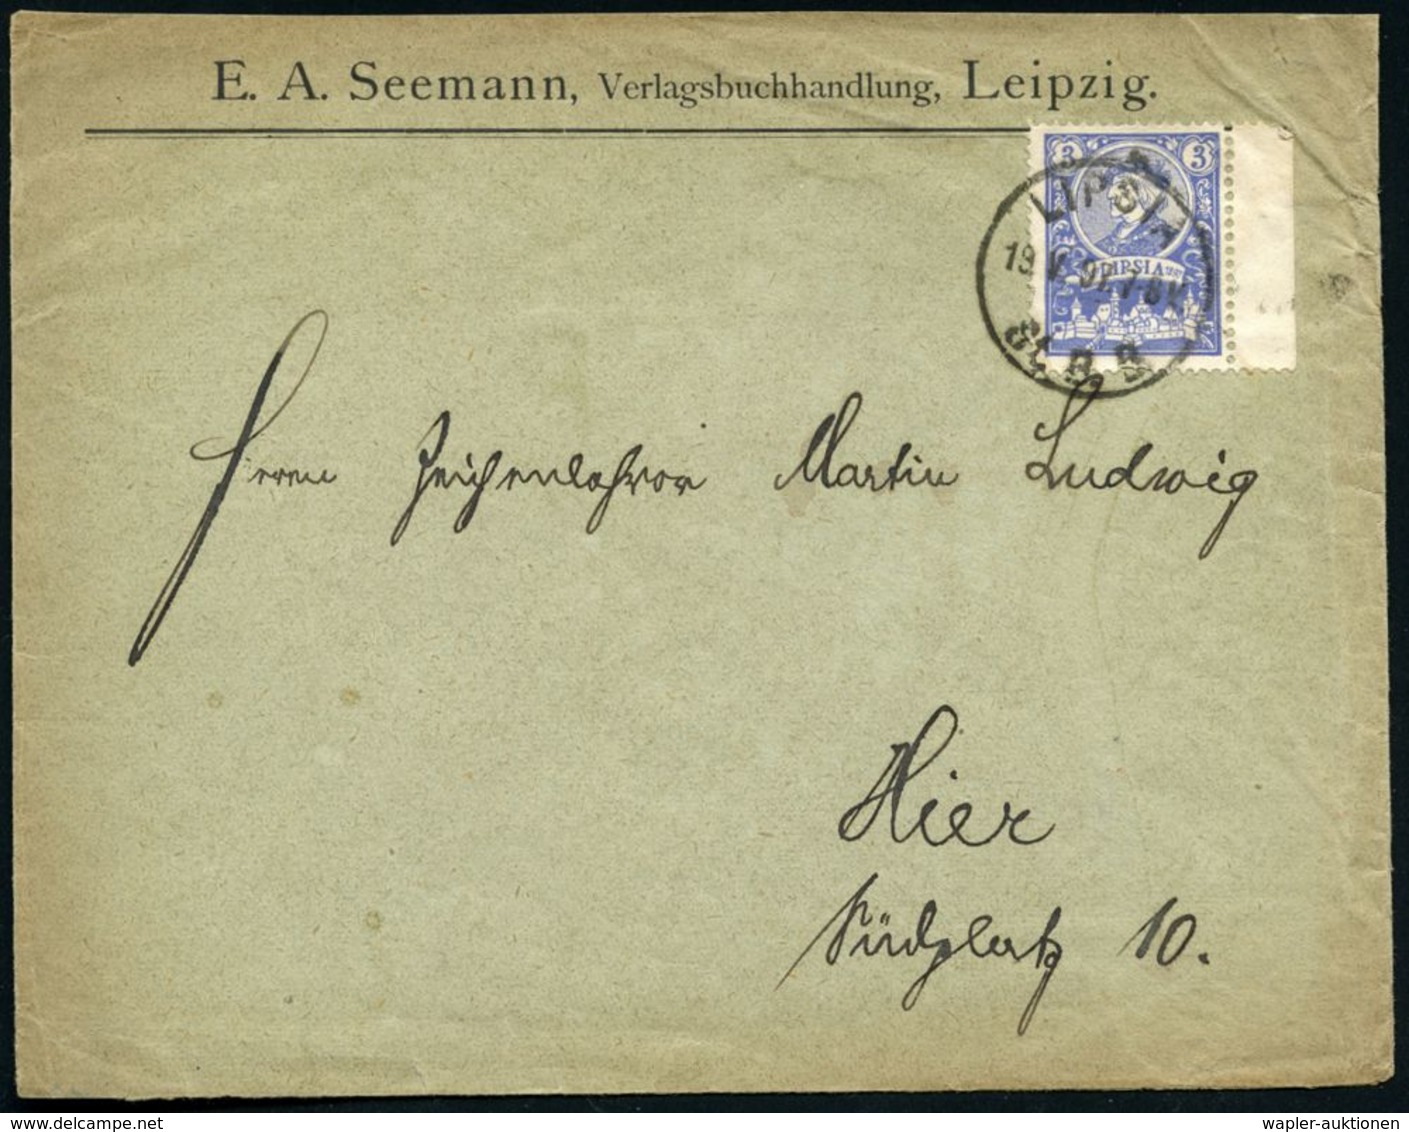 E. A. Seemann, Verlagsbuchhandlung, Leipzig.
3 3
LIPSIA
LIPSIA
19 V. 97. 7-8V.
Herrn Zeichenlehrer Martin Ludwig
Hier
Südplatz 10.
www.delcampe.net
wapler-auktionen